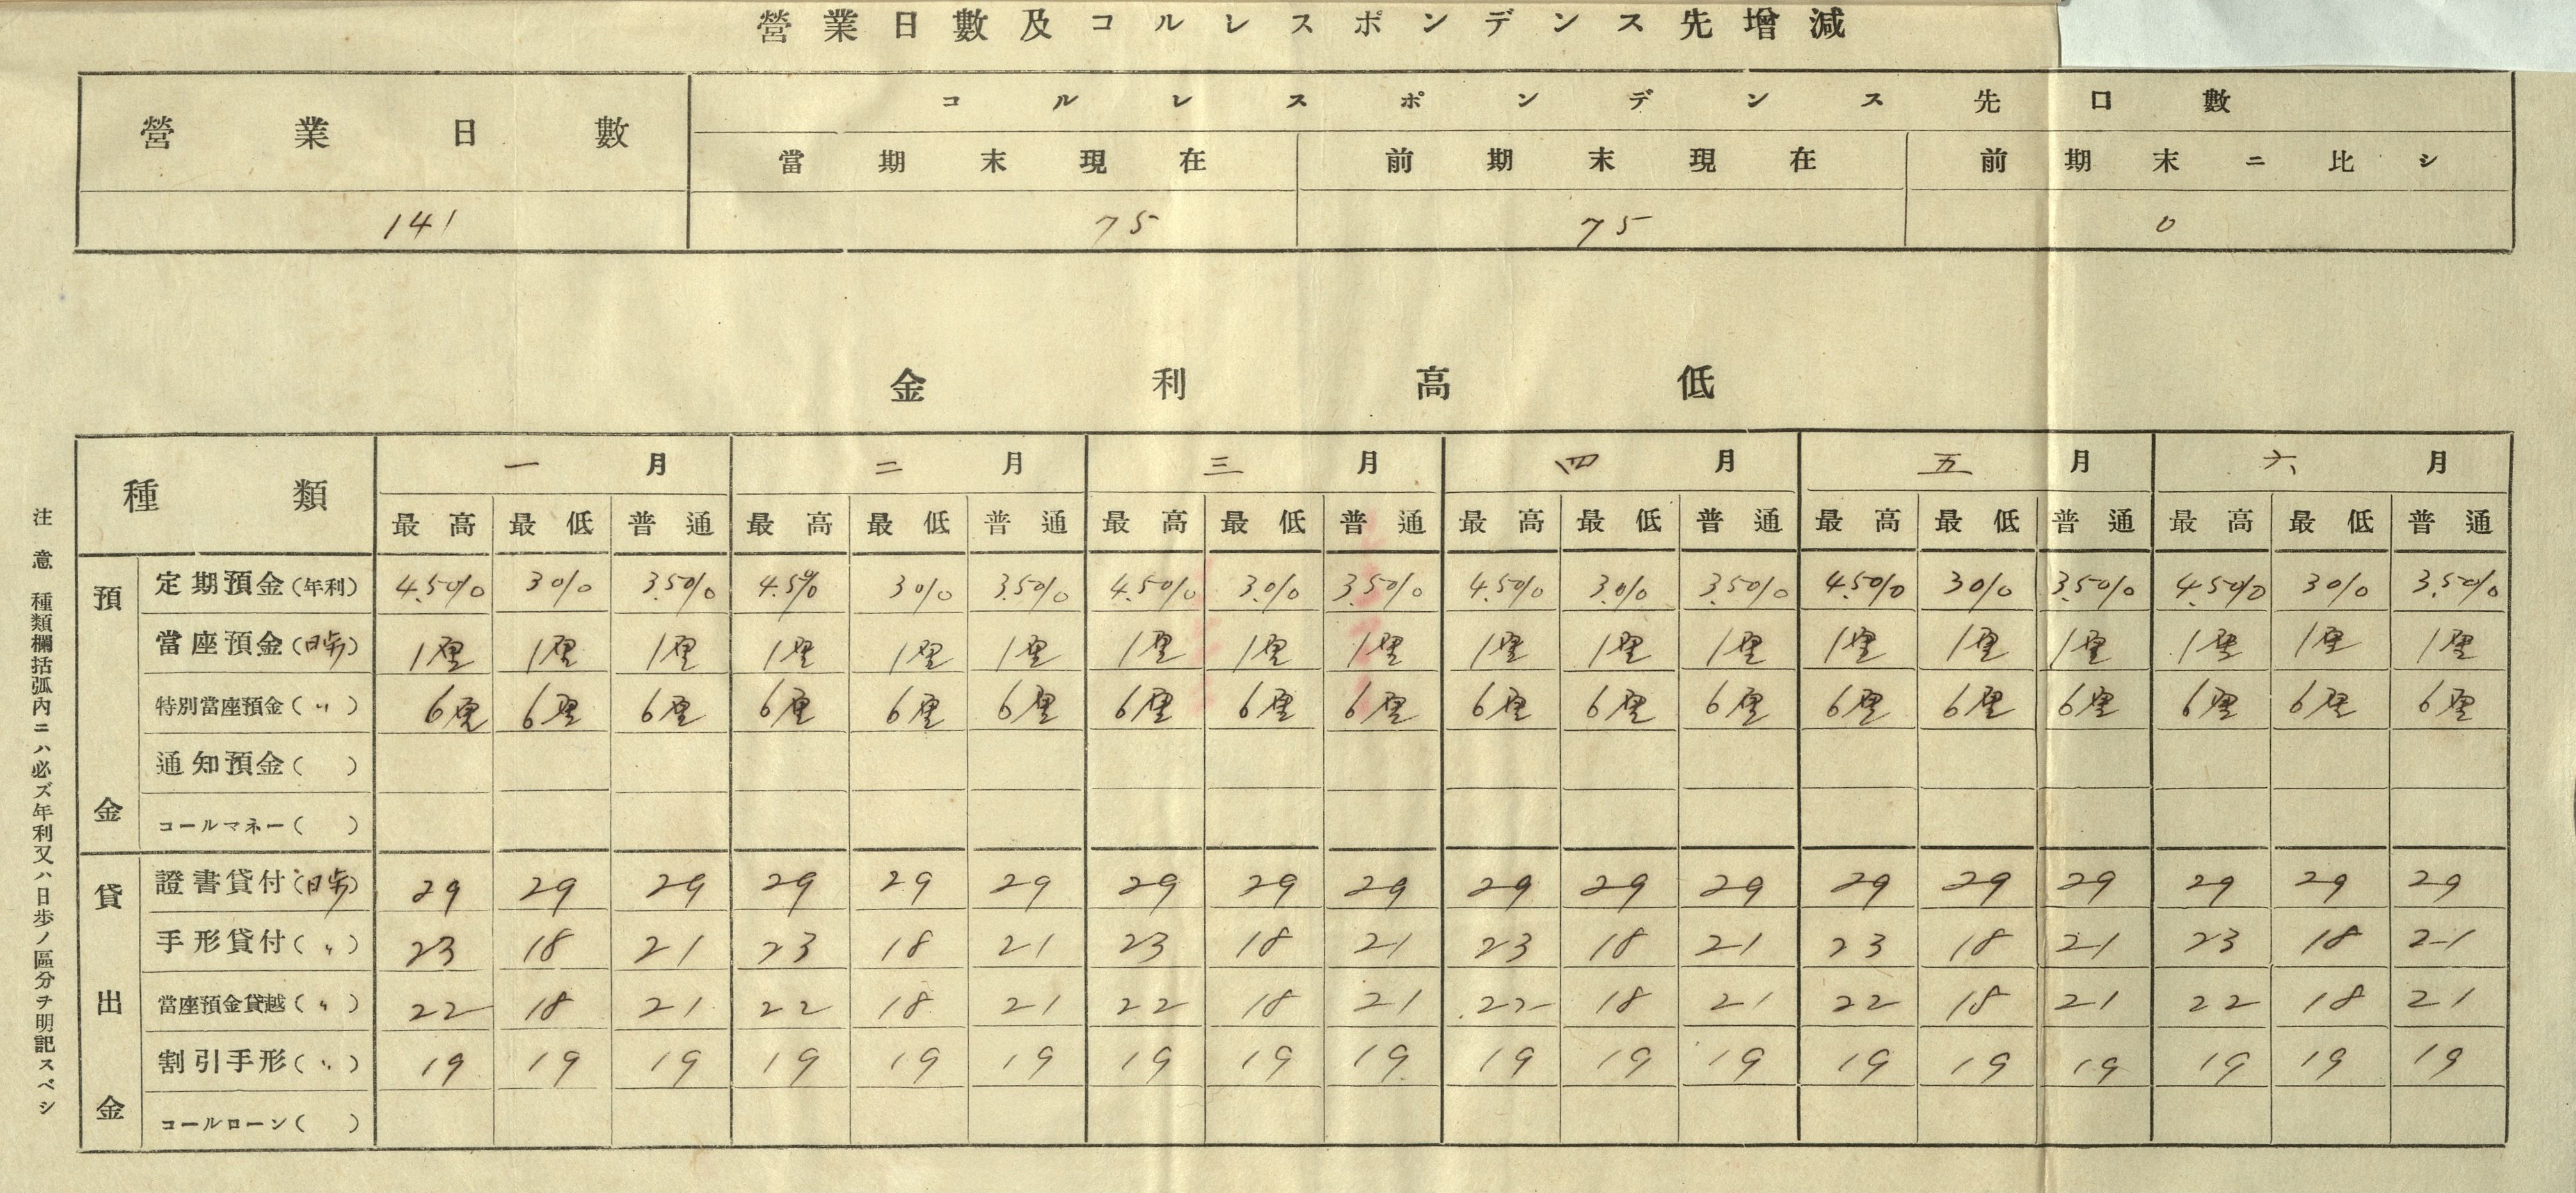 營業日數及コルレスポンデンス先增減
營業日數 コルレスポンデンス先口數
當期末現在 前期末現在 前期末ニ比シ
141 75 75 0
金利高低
種類 一月 二月 三月 四月 五月 六月
最高 最低 普通 最高 最低 普通 最高 最低 普通 最高 最低 普通 最高 最低 普通 最高 最低 普通
預金
定期預金(年利) 4.50% 30% 3.50% 4.5% 30% 3.50% 4.50% 3.0% 3.50% 4.50% 3.0% 3.50% 4.50% 30% 3.50% 4.50% 30% 3.50%
當座預金(日歩) 1厘 1厘 1厘 1厘 1厘 1厘 1厘 1厘 1厘 1厘 1厘 1厘 1厘 1厘 1厘 1厘 1厘 1厘
特別當座預金(〃) 6厘 6厘 6厘 6厘 6厘 6厘 6厘 6厘 6厘 6厘 6厘 6厘 6厘 6厘 6厘 6厘 6厘 6厘
通知預金( )
コールマネー( )
貸出金
證書貸付(日歩) 29 29 29 29 29 29 29 29 29 29 29 29 29 29 29 29 29 29
手形貸付(〃) 23 18 21 23 18 21 23 18 21 23 18 21 23 18 21 23 18 21
當座預金貸越(〃) 22 18 21 22 18 21 22 18 21 22 18 21 22 18 21 22 18 21
割引手形(〃) 19 19 19 19 19 19 19 19 19 19 19 19 19 19 19 19 19 19
コールローン( )
注意 種類欄括弧內ニハ必ズ年利又ハ日歩ノ區分ヲ明記スベシ